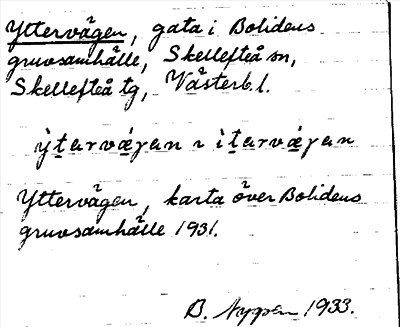 Yttervägen, gata i Bolidens
gruvsamhälle, Skellefteå sn,
Skellefteå tg, Västerb. l.
ỳt̲a̲rvǽγa̲n ~ ìt̲a̲rvǽγa̲n
Yttervägen, karta över Bolidens
gruvsamhälle 1931.
B. 1933.